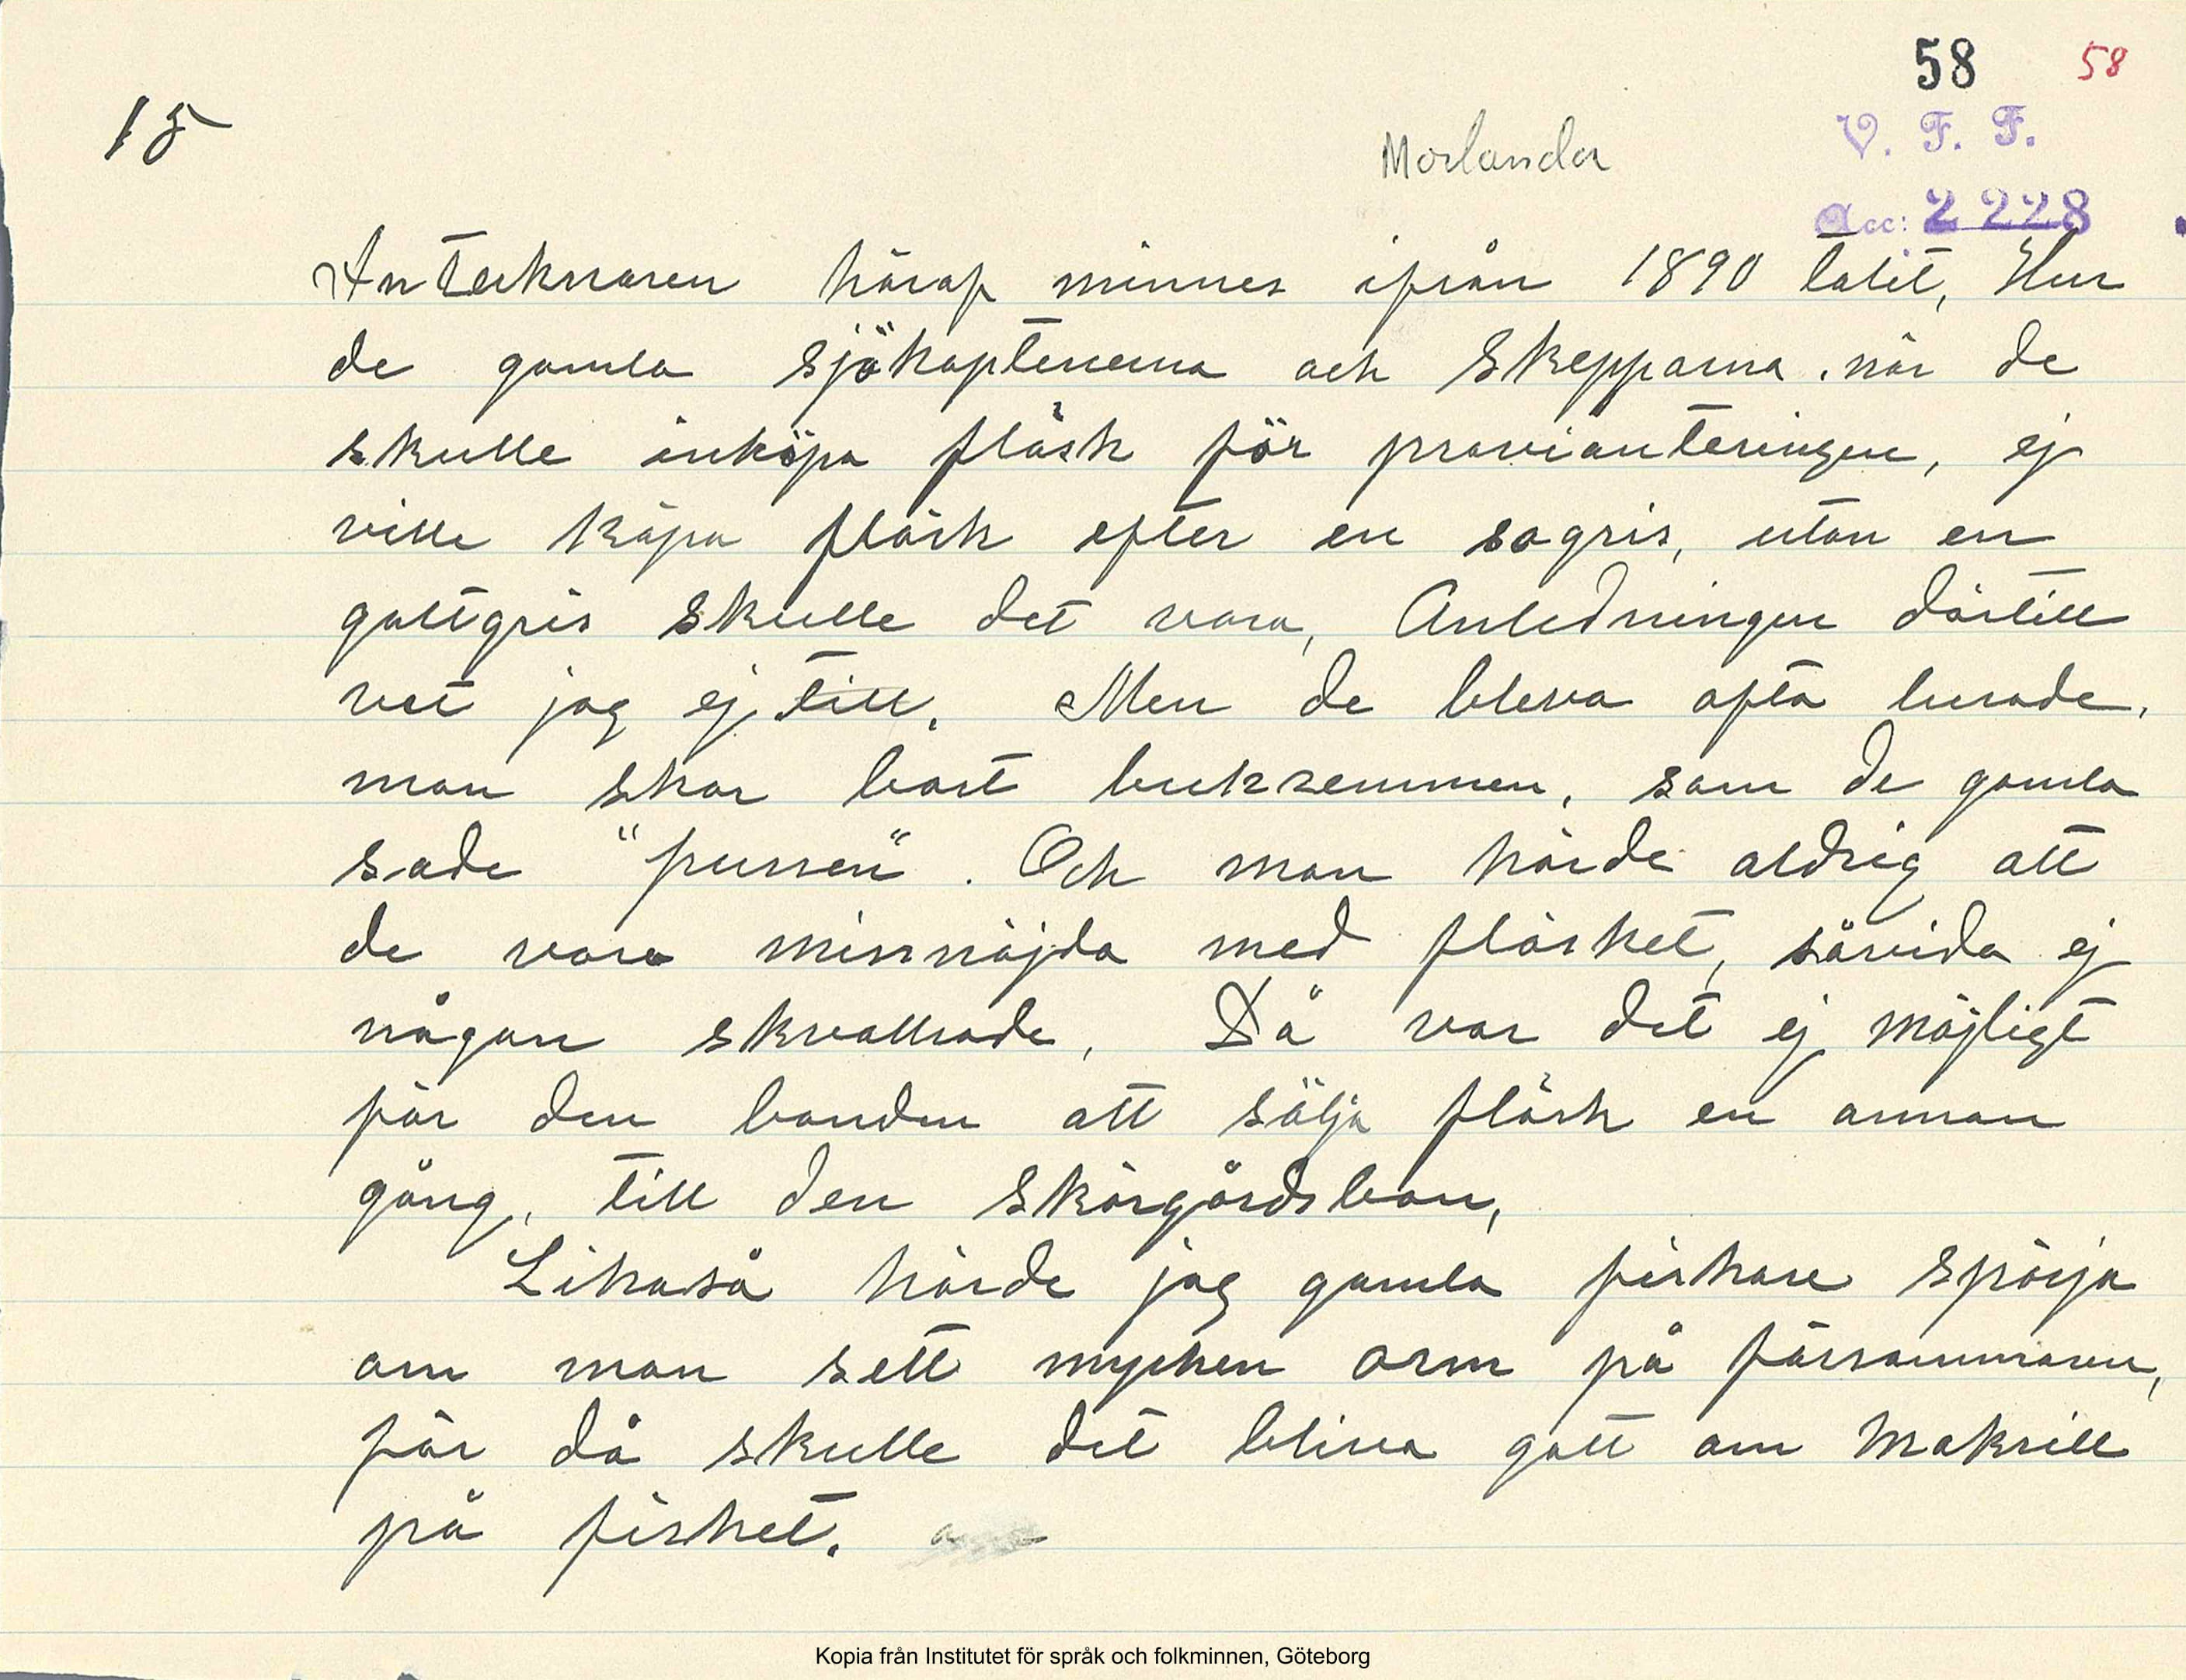 58 58
15
Morlanda
V. F. F.
Acc: 2 228
Antecknaren härav minnes ifrån 1890 talet, Hur
de gamla sjökaptenerna och skepparna. när de
skulle inköpa fläsk för provianteringen, ej
ville köpa fläsk efter en sogris, utan en
galtgris skulle det vara, Anledningen därtill
vet jag ej till. Men de bleva ofta lurade.
man skar bort bukremmen, som de gamla
sade "pussen". Och man hörde aldrig att
de voro missnöjda med fläsket, såvida ej
någon skvallrade, Då var det ej möjligt
för den bonden att sälja fläsk en annan
gång, till den skärgårdsbon,
Likaså hörde jag gamla fiskare spörja
om man sett mycken orm på försommaren,
för då skulle det bliva gott om Makrill
på fisket.
Kopia från Institutet för språk och folkminnen, Göteborg